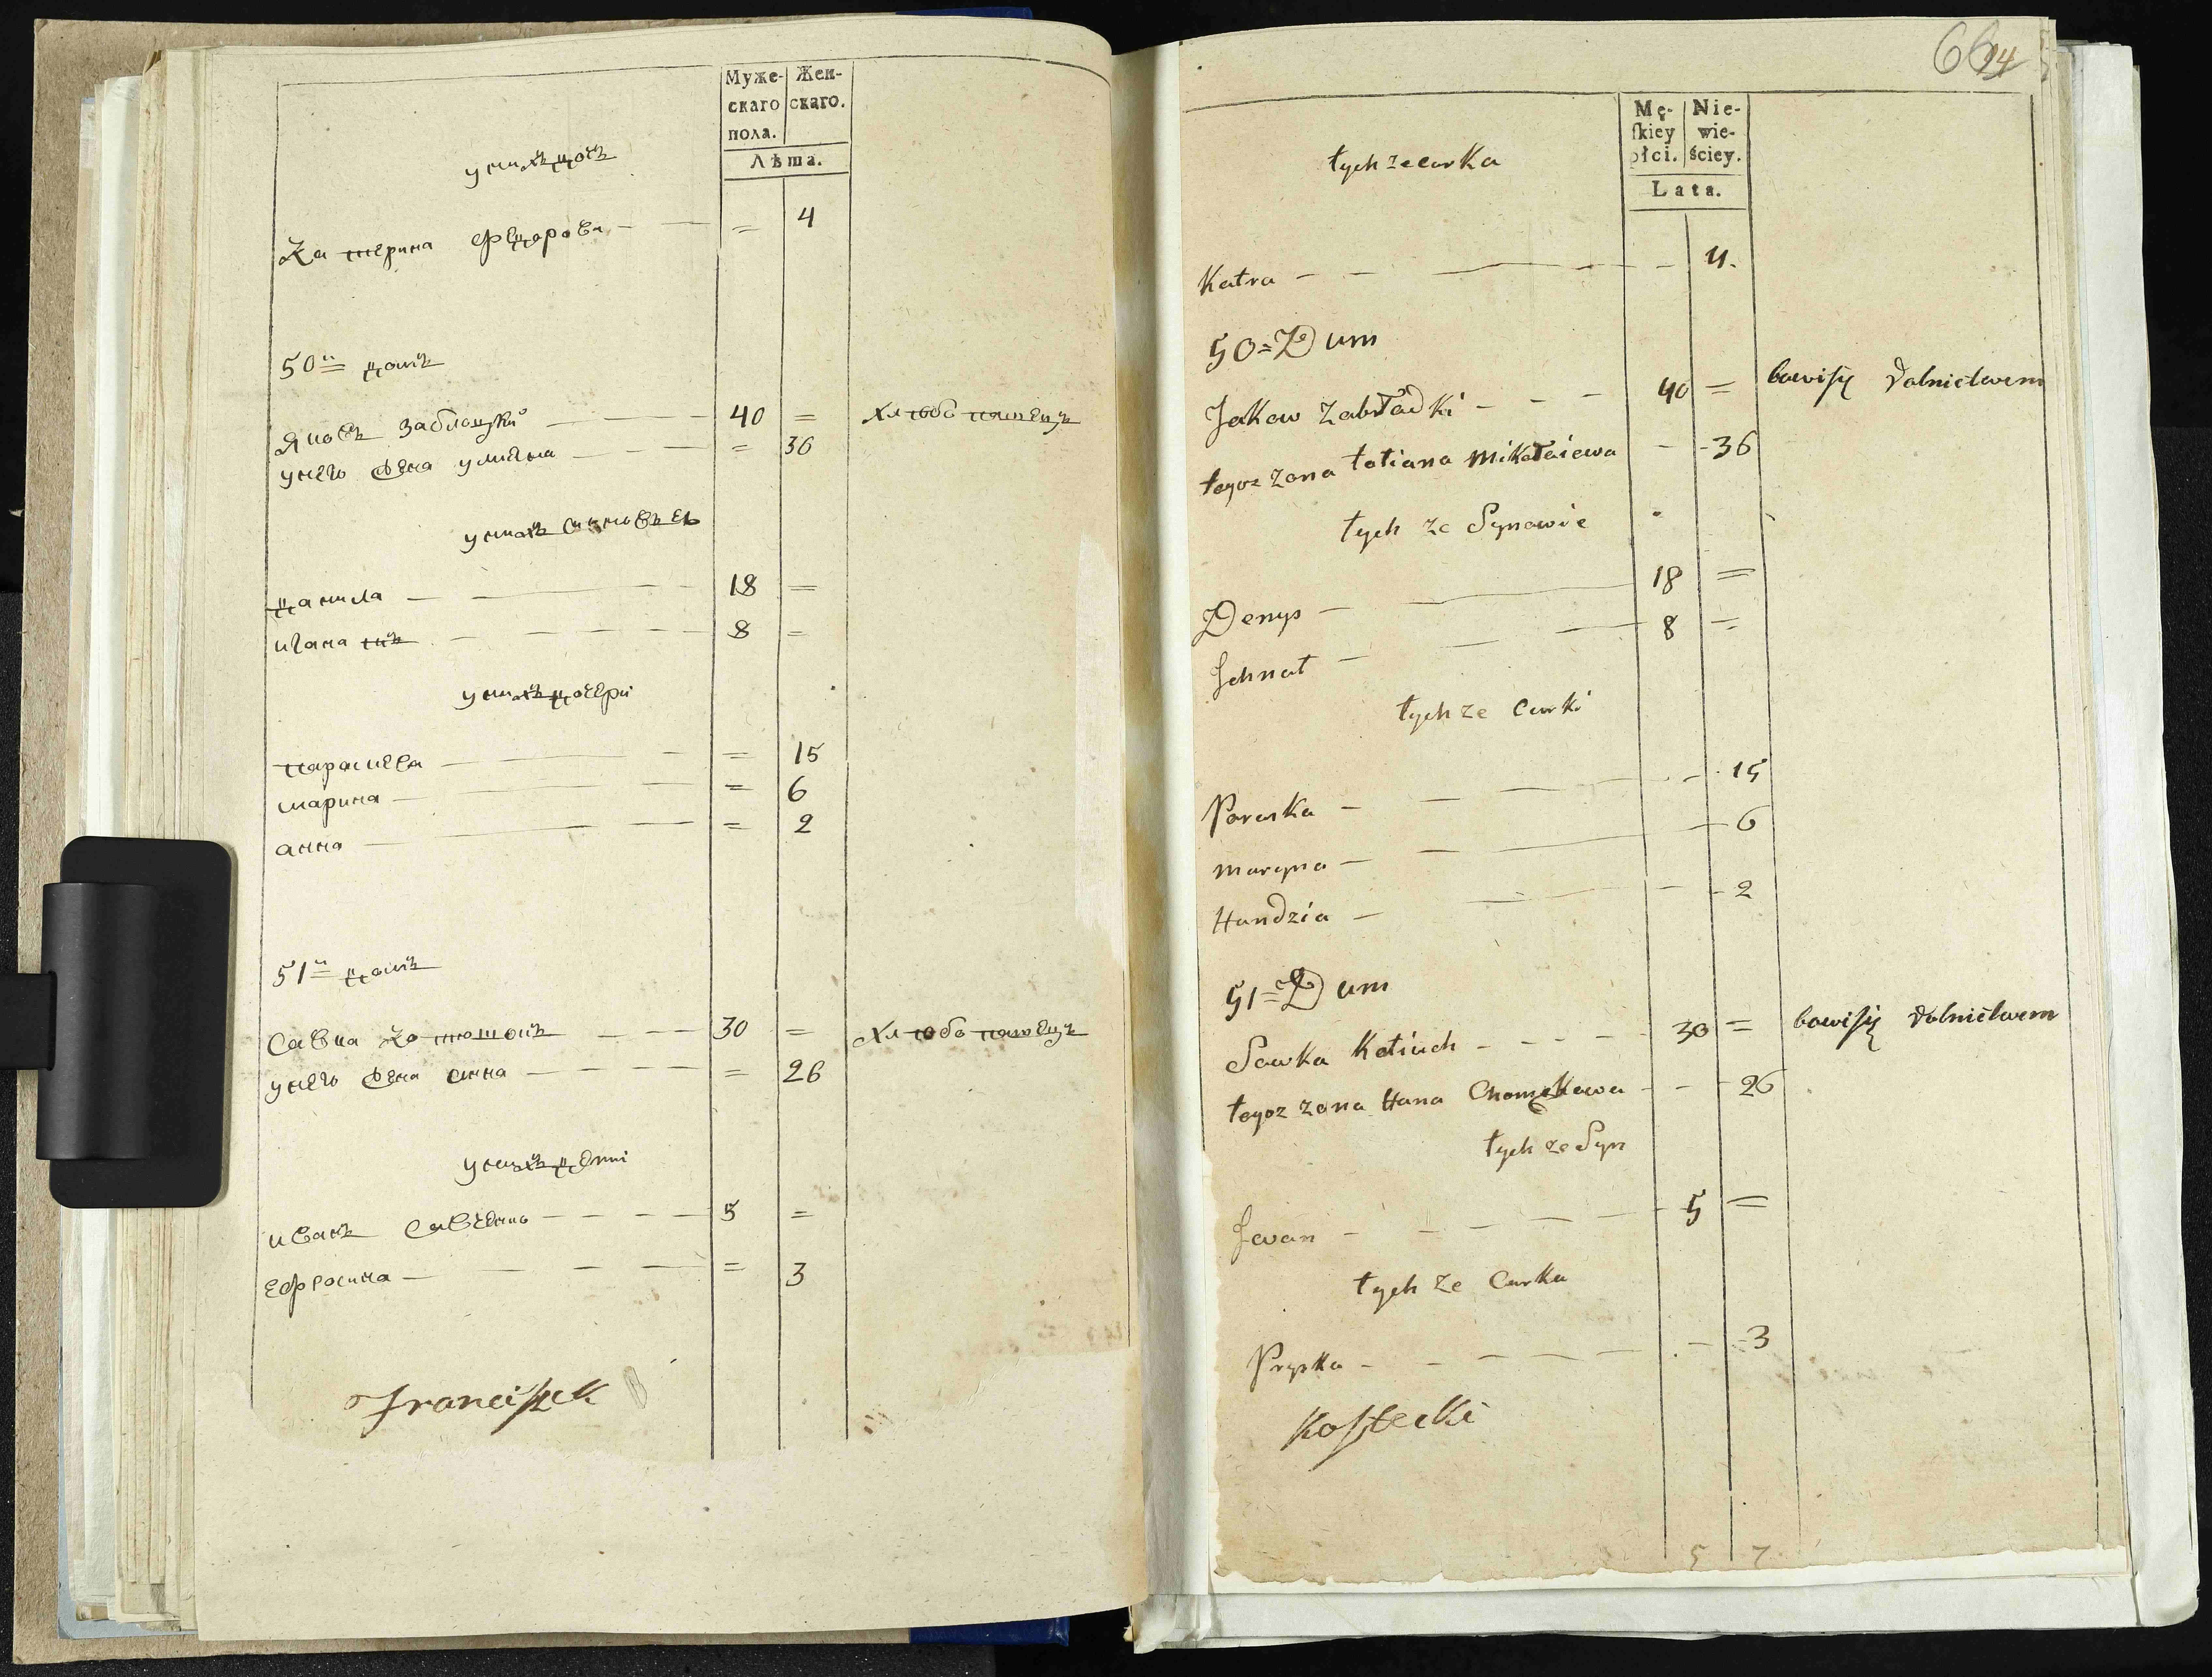 Муже-
скаго
пола.
Жен-
скаго.
Лѣта.
у нихъ дочь
Катерина Федорова — — = 4
50й домъ
Яковъ Заблоцкий — — 40 = Хлебопашецъ
у него жена улияна — — — = 36
у нихъ сыновъев
данила — — 18 =
игнатий — — 8 =
у нихъ дочери
параскева — — = 15
марина — — = 6
анна — — = 2
51й домъ
Савка Котюшокъ — — 30 = Хлебопашецъ
у него жена анна — — — = 26
у нихъ дети
иванъ — — — 5 =
ефросина — — = 3
Franciszek
6
94
Mę-
skiey
płci.
Nie-
wie-
ściey.
Lata.
tych ze curka
Katra — — 4.
50 = Dum
Jakow Zabłodki — — 40 = bawi się Rolnictwem
tegoz zona tatiana Mikołaiewa — 36
tych ze Synowie
Denys — — 18 =
Jchnat — — 8 =
tych ze Curki
Paraska — — 15
Maryna — — 6
Handzia — — 2
51 = Dum
Sawka Katiuch — — 30 = bawi się Rolnictwem
tegoz zona Hana — — 26
tych ze Syn
Jwan — — 5 =
tych ze Curka
Pryska — — 3
Kostecki
5 7